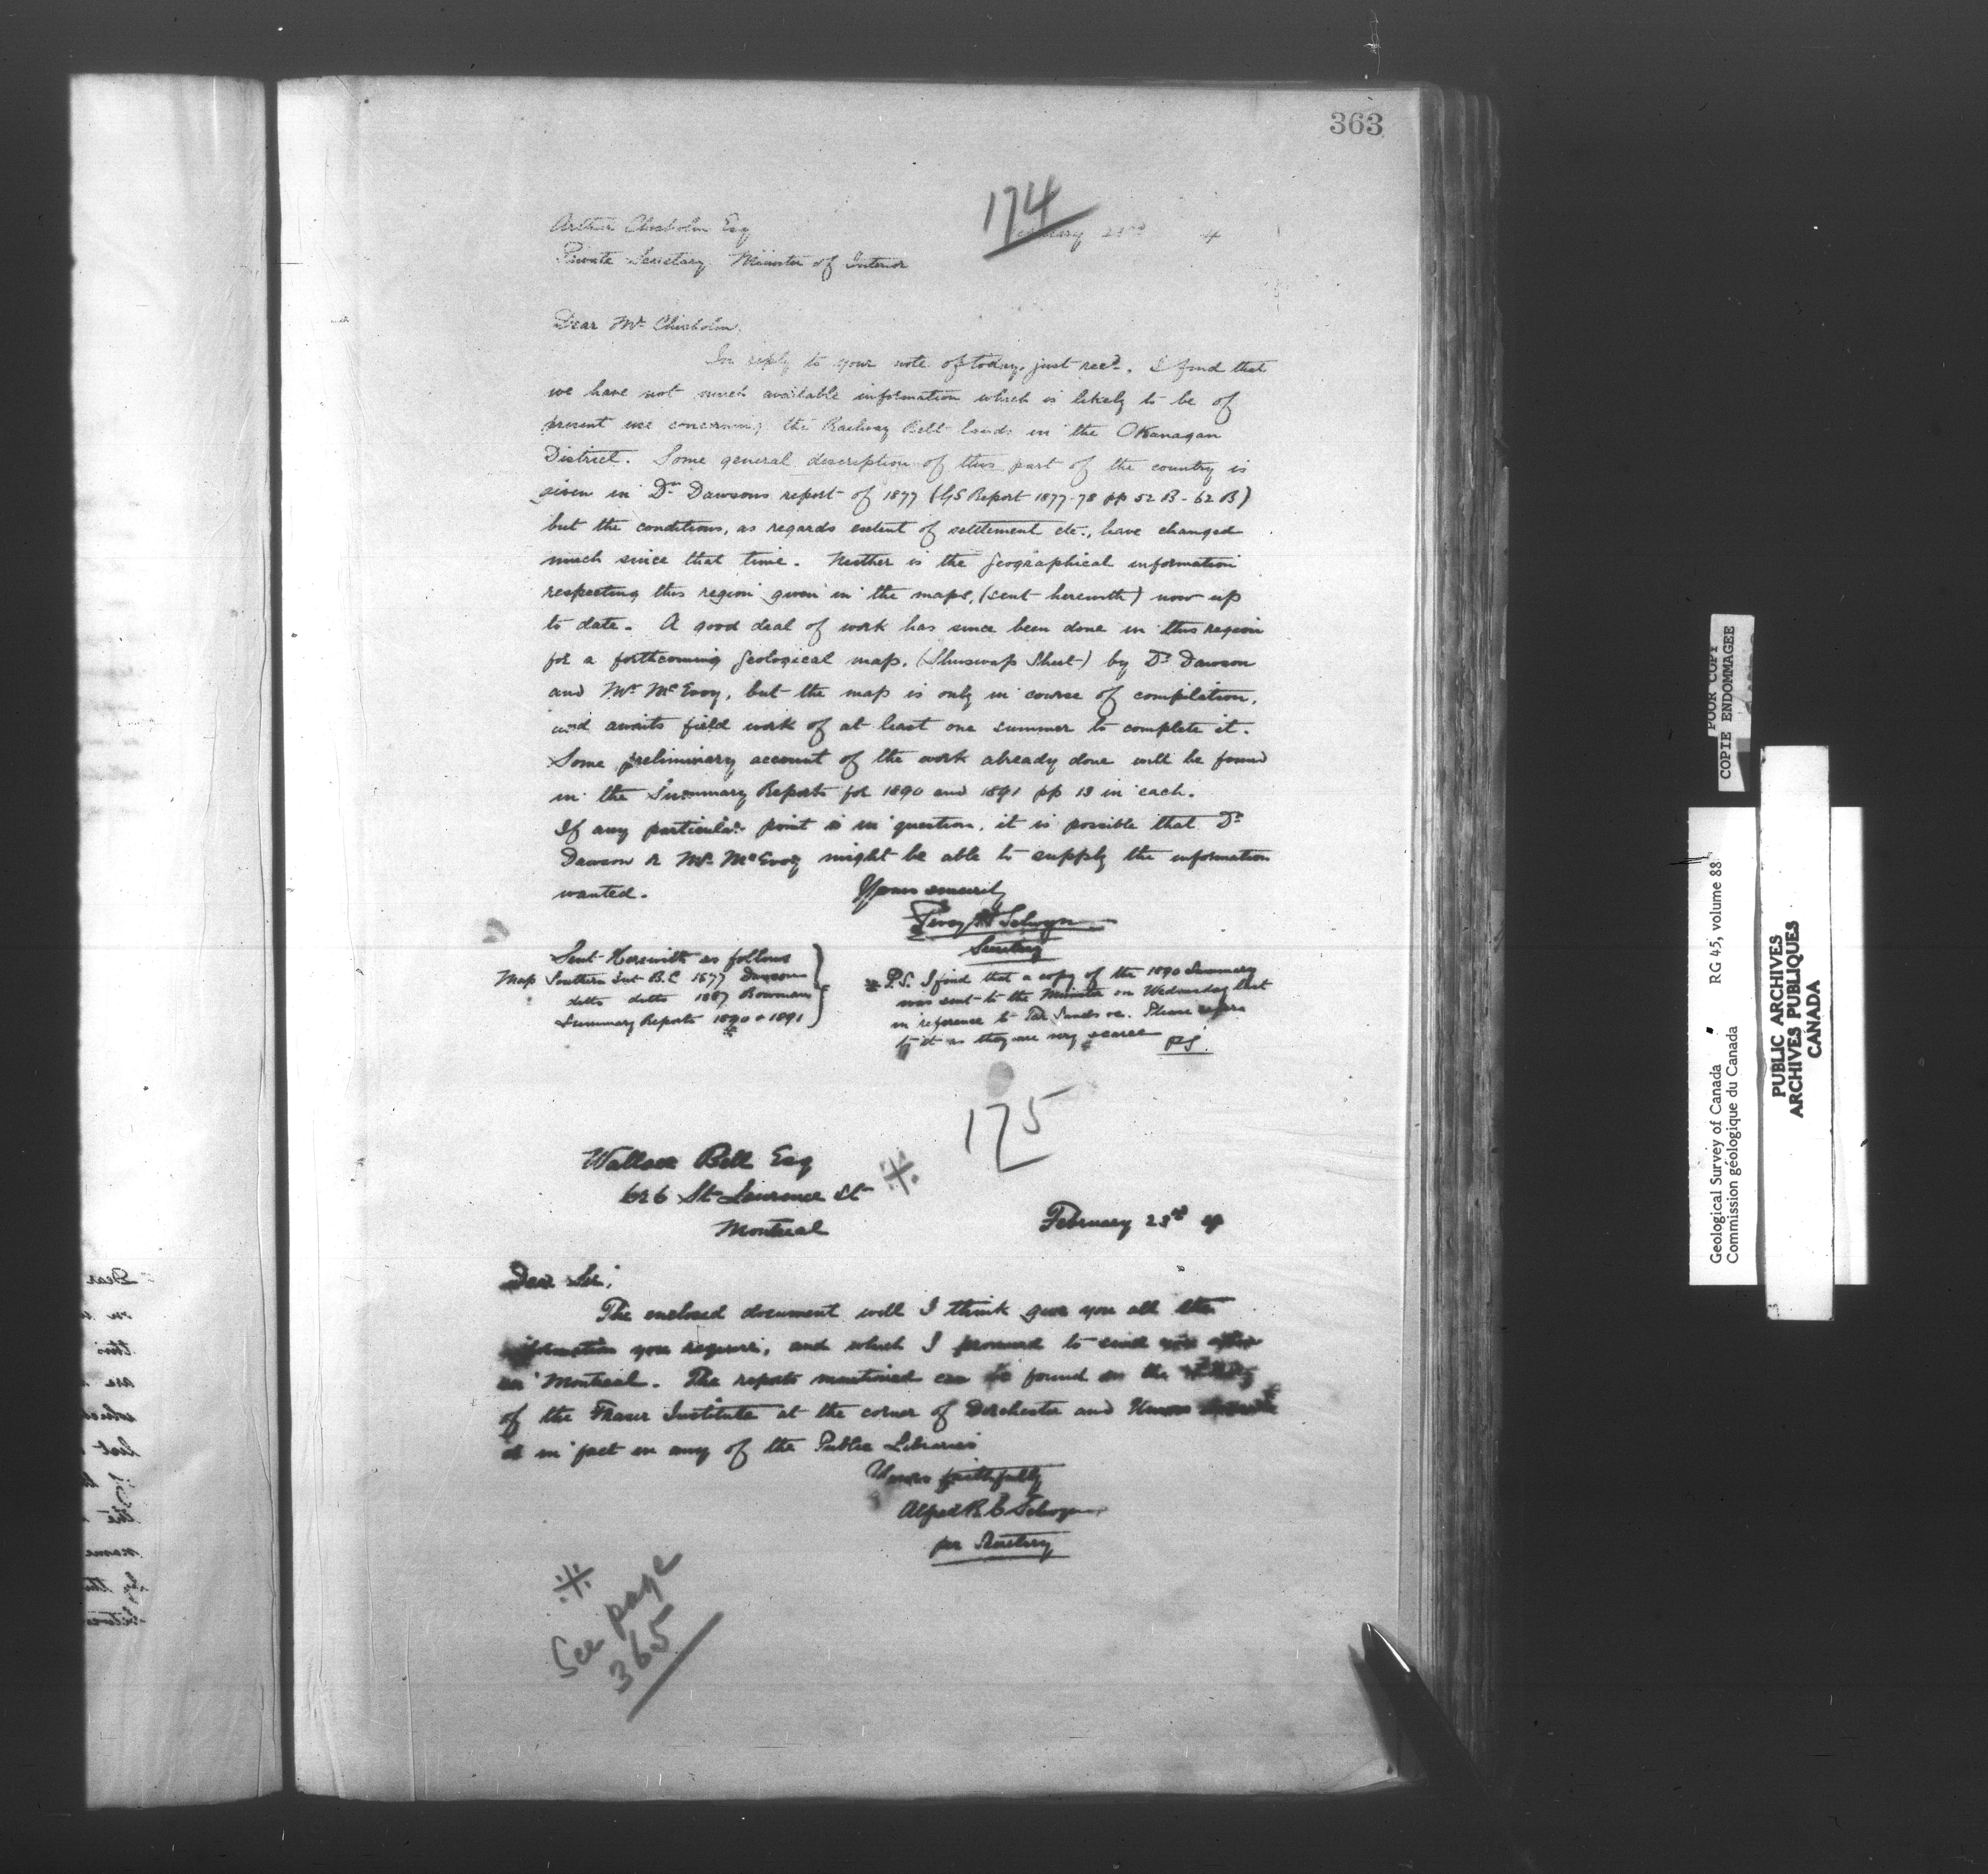 363
174
Arthur Chisholm Esq
February 23rd 4
Private Secretary Minister of Interior
Dear Mr Chisholm.
In reply to your note of today, just recd. I find that
we have not much available information which is likely to be of
present use concerning the Railway Belt lands in the Okanagan
District. Some general description of this part of the country is
given in Dr Dawsons report of 1877 (GS Report 1877-78 pp 52 B - 62 B)
but the conditions, as regards extent of settlement etc., have changed
much since that time. Neither is the geographical information
respecting this region given in the maps, (sent herewith) now up
to date. A good deal of work has since been done in this region
for a forthcoming geological map, (Shuswap Sheet) by Dr Dawson
and Mr McEvoy, but the map is only in course of compilation,
and awaits field work of at least one summer to complete it.
Some preliminary account of the work already done will be found
in the Summary Reports for 1890 and 1891 pp 13 in each.
If any particular point is in question, it is possible that Dr
Dawson or Mr McEvoy might be able to supply the information
wanted.
Yours sincerely
Percy H Selwyn
Secretary
Sent Herewith as follows
Map Southern Int B.C 1877 Dawson
ditto ditto 1887 Bowman
Summary Reports 1890 & 1891
P.S. I find that a copy of the 1890 Summary
was sent to the Minister on Wednesday last
in reference to Tar Sands &c. Please refer
to it as they are very scarce
PS.
175
Wallace Bell Esq
626 St Lawrence St
Montreal
February 23rd 4
Dear Sir,
The enclosed document will I think give you all the
information you require, and which I promised to send
in Montreal. The reports mentioned can be found in the
of the Fraser Institute at the corner of Dorchester and
or in fact in any of the Public Libraries
Yours faithfully
Alfred R. C Selwyn
per Secretary
See page
365
POOR COPY
COPIE ENDOMMAGEE
Geological Survey of Canada RG 45, volume 88
Commission géologique du Canada
PUBLIC ARCHIVES
ARCHIVES PUBLIQUES
CANADA